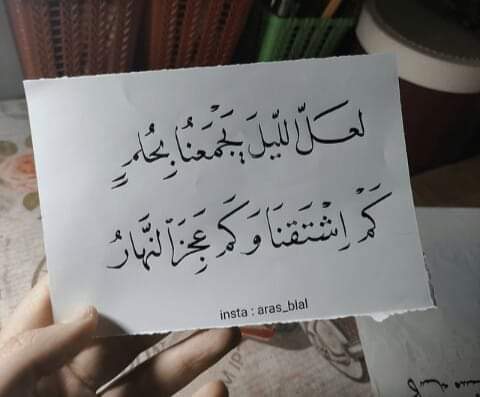 لعلَّ الليلَ يَجْمَعَنُا بِحُلمٍ
كَمْ اِشْتَقنَا وَكَم عَجِزَ النَّهَارُ
insta : aras_blal